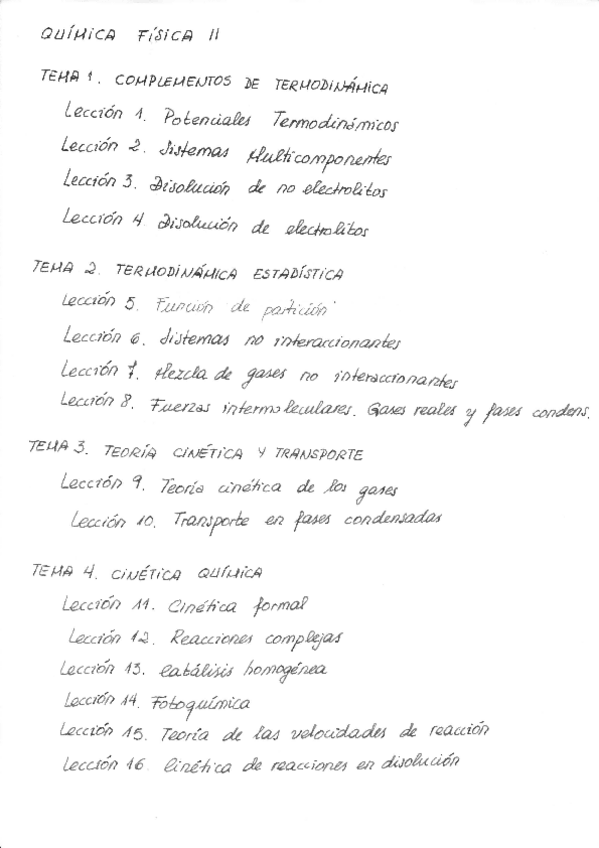 QUÍMICA FÍSICA II
TEMA 1. COMPLEMENTOS DE TERMODINÁMICA
Lección 1. Potenciales Termodinámicos
Lección 2. Sistemas Multicomponentes
Lección 3. Disolución de no electrolitos
Lección 4. Disolución de electrolitos
TEMA 2. TERMODINÁMICA ESTADÍSTICA
Lección 5. Función de partición
Lección 6. Sistemas no interaccionantes
Lección 7. Mezcla de gases no interaccionantes
Lección 8. Fuerzas intermoleculares. Gases reales y fases condens.
TEMA 3. TEORÍA CINÉTICA Y TRANSPORTE
Lección 9. Teoría cinética de los gases
Lección 10. Transporte en fases condensadas
TEMA 4. CINÉTICA QUÍMICA
Lección 11. Cinética formal
Lección 12. Reacciones complejas
Lección 13. Catálisis homogénea
Lección 14. Fotoquímica
Lección 15. Teoría de las velocidades de reacción
Lección 16. Cinética de reacciones en disolución